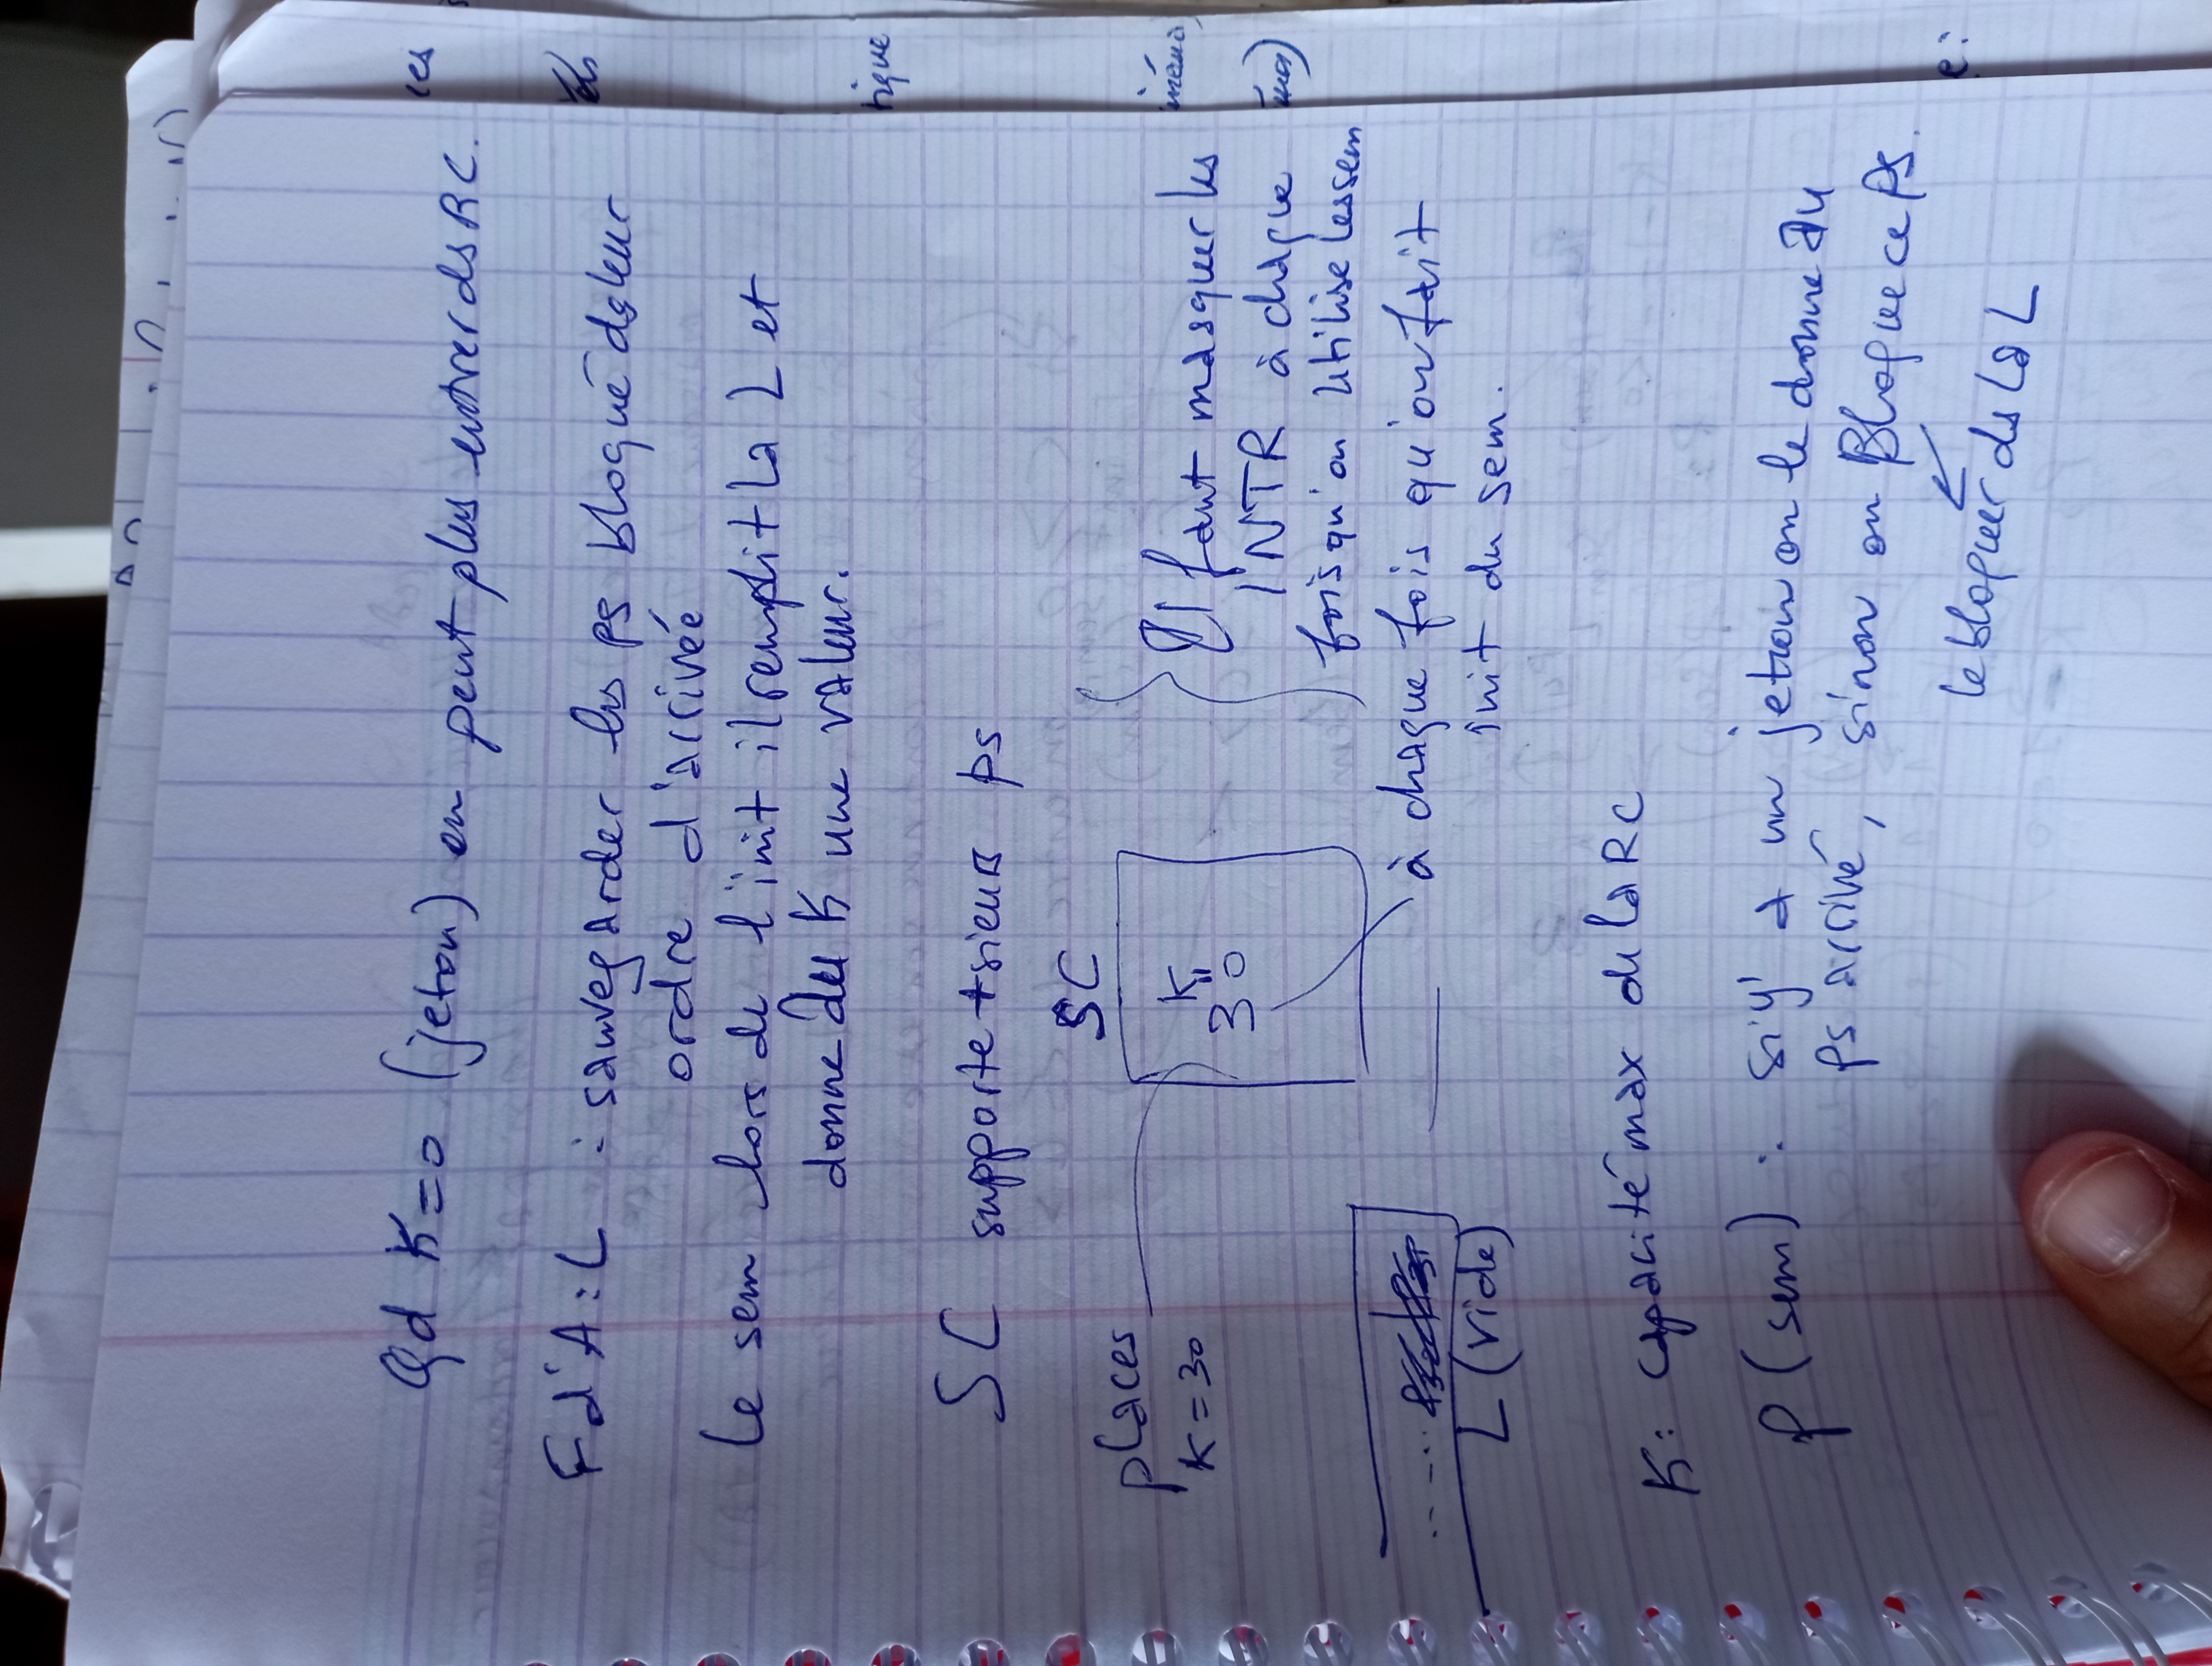 Qd K=0 (jeton) on peut plus entrer ds RC.
F d'A : L : sauvegarder les ps bloqué ds leur
ordre d'arrivée
le sem lors de l'init il remplit la L et
donne au K une valeur.
SC supporte +sieurs ps
SC
places
K = 30
K
"
30
Il faut masquer les
INTR à chaque
fois qu'on utilise les sem
à chaque fois qu'on fait
init du sem.
.......
L (vide)
K: capacité max de la RC
P (sem) : si y' a un jeton on le donne au
ps arrivé, sinon on Bloque ce ps.
le bloquer ds la L
ces
ds
tique
e: